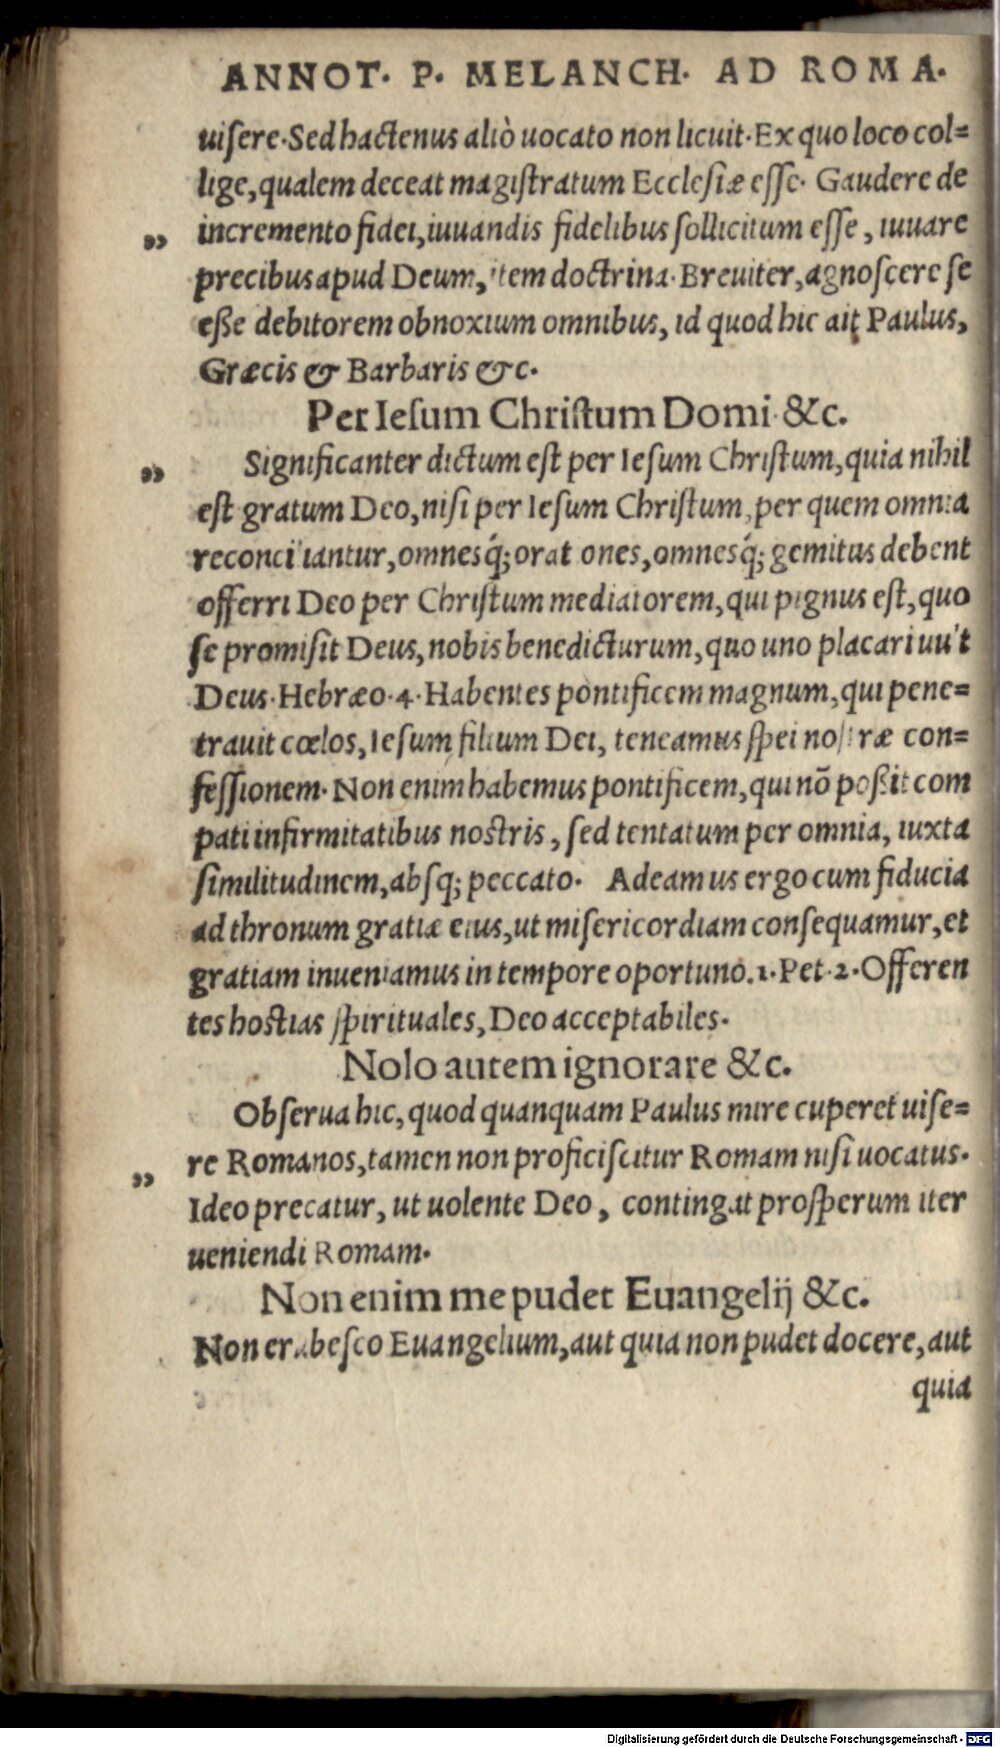 ANNOT. P. MELANCH. AD ROMA.
uiſere. Sed hactenus aliò uocato non licuit. Ex quo loco col=
lige, qualem deceat magiſtratum Eccleſiæ eſſe. Gaudere de
„ incremento fidei, iuuandis fidelibus ſollicitum eſſe, iuuare
precibus apud Deum, item doctrina. Breuiter, agnoſcere ſe
eſſe debitorem obnoxium omnibus, id quod hic ait Paulus,
Græcis & Barbaris &c.
Per Ieſum Chriſtum Domi. &c.
„ Significanter dictum eſt per Ieſum Chriſtum, quia nihil
eſt gratum Deo, niſi per Ieſum Chriſtum, per quem omnia
reconciliantur, omnesq́; orationes, omnesq́; gemitus debent
offerri Deo per Chriſtum mediatorem, qui pignus eſt, quo
ſe promiſit Deus, nobis benedicturum, quo uno placari uult
Deus. Hebræo. 4. Habentes pontificem magnum, qui pene=
trauit cœlos, Ieſum filium Dei, teneamus ſpei noſtræ con=
feſſionem. Non enim habemus pontificem, qui nõ poßit com
pati infirmitatibus noſtris, ſed tentatum per omnia, iuxta
ſimilitudinem, abſq; peccato. Adeamus ergo cum fiducia
ad thronum gratiæ eius, ut miſericordiam conſequamur, et
gratiam inueniamus in tempore oportuno. 1. Pet. 2. Offeren
tes hoſtias ſpirituales, Deo acceptabiles.
Nolo autem ignorare &c.
Obſerua hic, quod quanquam Paulus mire cuperet uiſe=
„ re Romanos, tamen non proficiſcitur Romam niſi uocatus.
Ideo precatur, ut uolente Deo, contingat proſperum iter
ueniendi Romam.
Non enim me pudet Euangelij &c.
Non erubeſco Euangelium, aut quia non pudet docere, aut
quia
Digitalisierung gefördert durch die Deutsche Forschungsgemeinschaft - DFG